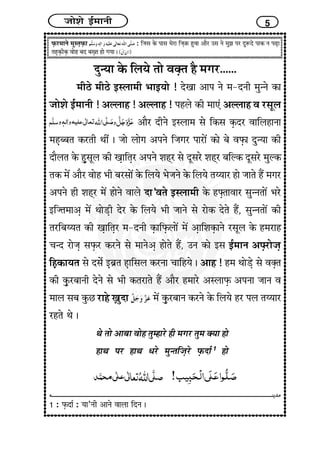 जोशे ईमानी 5
फ़रमाने मुस्तफ़ा صلى الله تعالى عليه واله وسلم : जिस के पास मेरा ज़िक्र हुवा और उस ने मुझ पर दुरूदे पाक न पढ़ा
तहक़ीक़ वोह बद बख़्त हो गया। (ابن سنی)
दुन्या के लिये तो वक़्त है मगर......
मीठे मीठे इस्लामी भाइयो ! देखा आप ने म-दनी मुन्ने का
जोशे ईमानी ! अल्लाह ! अल्लाह ! पहले की माएं अल्लाह व रसूल
عَزَّوَجَلَّ وَصَلَّى اللهُ تَعَالٰى عليه واٰله وسلَّم और दीने इस्लाम से किस क़दर वालिहाना
महब्बत करती थीं। जो लोग अपने जिगर पारों को बे वफ़ा दुन्या की
दौलत के हुसूल की ख़ातिर अपने शहर से दूसरे शहर बल्कि दूसरे मुल्क
तक में और वोह भी बरसों के लिये भेजने के लिये तय्यार हो जाते हैं मगर
अपने ही शहर में होने वाले दा'वते इस्लामी के हफ़्तावार सुन्नतों भरे
इज्तिमाअ़ में थोड़ी देर के लिये भी जाने से रोक देते हैं, सुन्नतों की
तरबिय्यत की ख़ातिर म-दनी क़ाफ़िलों में आ़शिक़ाने रसूल के हमराह
चन्द रोज़ सफ़र करने से मानेअ़ होते हैं, उन को इस ईमान अफ़रोज़
हिक़ायत से दर्से इब्रत हासिल करना चाहिये। आह ! हम थोड़े से वक़्त
की क़ुरबानी देने से भी कतराते हैं और हमारे अस्लाफ़ अपना जान व
माल सब कुछ राहे ख़ुदा عَزَّوَجَلَّ में क़ुरबान करने के लिये हर पल तय्यार
रहते थे।
थे तो आबा वोह तुम्हारे ही मगर तुम क्या हो
हाथ पर हाथ धरे मुन्तज़िरे फ़र्दा¹ हो
صَلُّوا عَلَى الْحَبِيبِ ! صلَّى اللهُ تعالٰى على محمَّد
1 : फ़र्दा : या'नी आने वाला दिन।